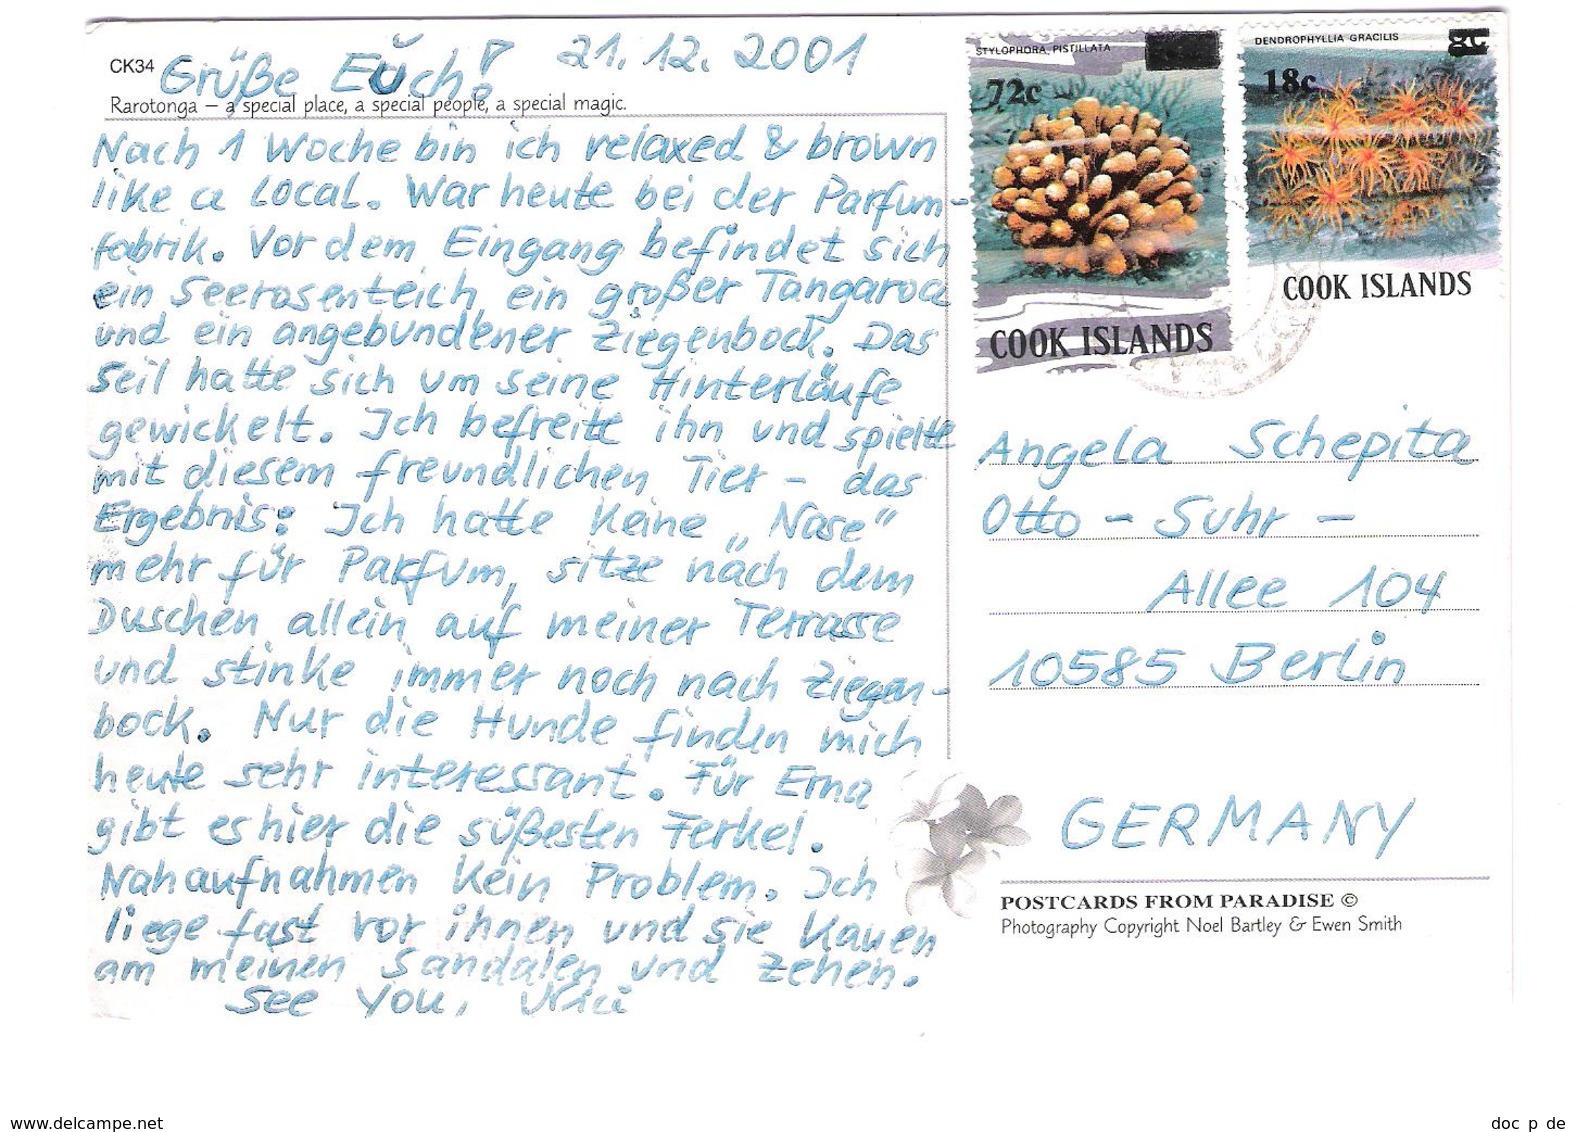 CK34
Grüße Euch! 21.12.2001
Rarotonga – a special place, a special people, a special magic.
Nach 1 Woche bin ich relaxed & brown
like a local. War heute bei der Parfum-
fabrik. Vor dem Eingang befindet sich
ein Seerosenteich, ein großer Tangaroa
und ein angebundener Ziegenbock. Das
Seil hatte sich um seine Hinterläufe
gewickelt. Ich befreite ihn und spielte
mit diesem freundlichen Tier – das
Ergebnis: Ich hatte keine „Nase"
mehr für Parfum, sitze nach dem
Duschen allein auf meiner Terrasse
und stinke immer noch nach Ziegen-
bock. Nur die Hunde finden mich
heute sehr interessant. Für Erna
gibt es hier die süßesten Ferkel.
Nahaufnahmen kein Problem. Ich
liege fast vor ihnen und sie kauen
am meinen Sandalen und Zehen.
See you,
STYLOPHORA PISTILLATA
72c
COOK ISLANDS
DENDROPHYLLIA GRACILIS
8c
18c
COOK ISLANDS
Angela Schepita
Otto - Suhr -
Allee 104
10585 Berlin
GERMANY
POSTCARDS FROM PARADISE ©
Photography Copyright Noel Bartley & Ewen Smith
www.delcampe.net
doc_p_de